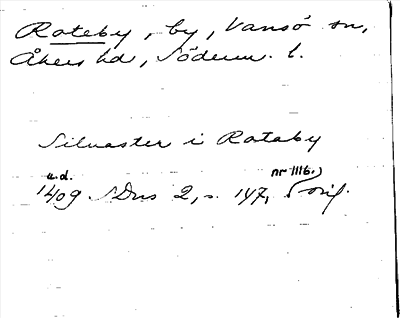 Rateby, by, Vansö sn,
Åkers hd, Söderm. l.
Siluaster i Rataby
u.d. nr 1116.)
1409 SDns 2, s. 147, orig.